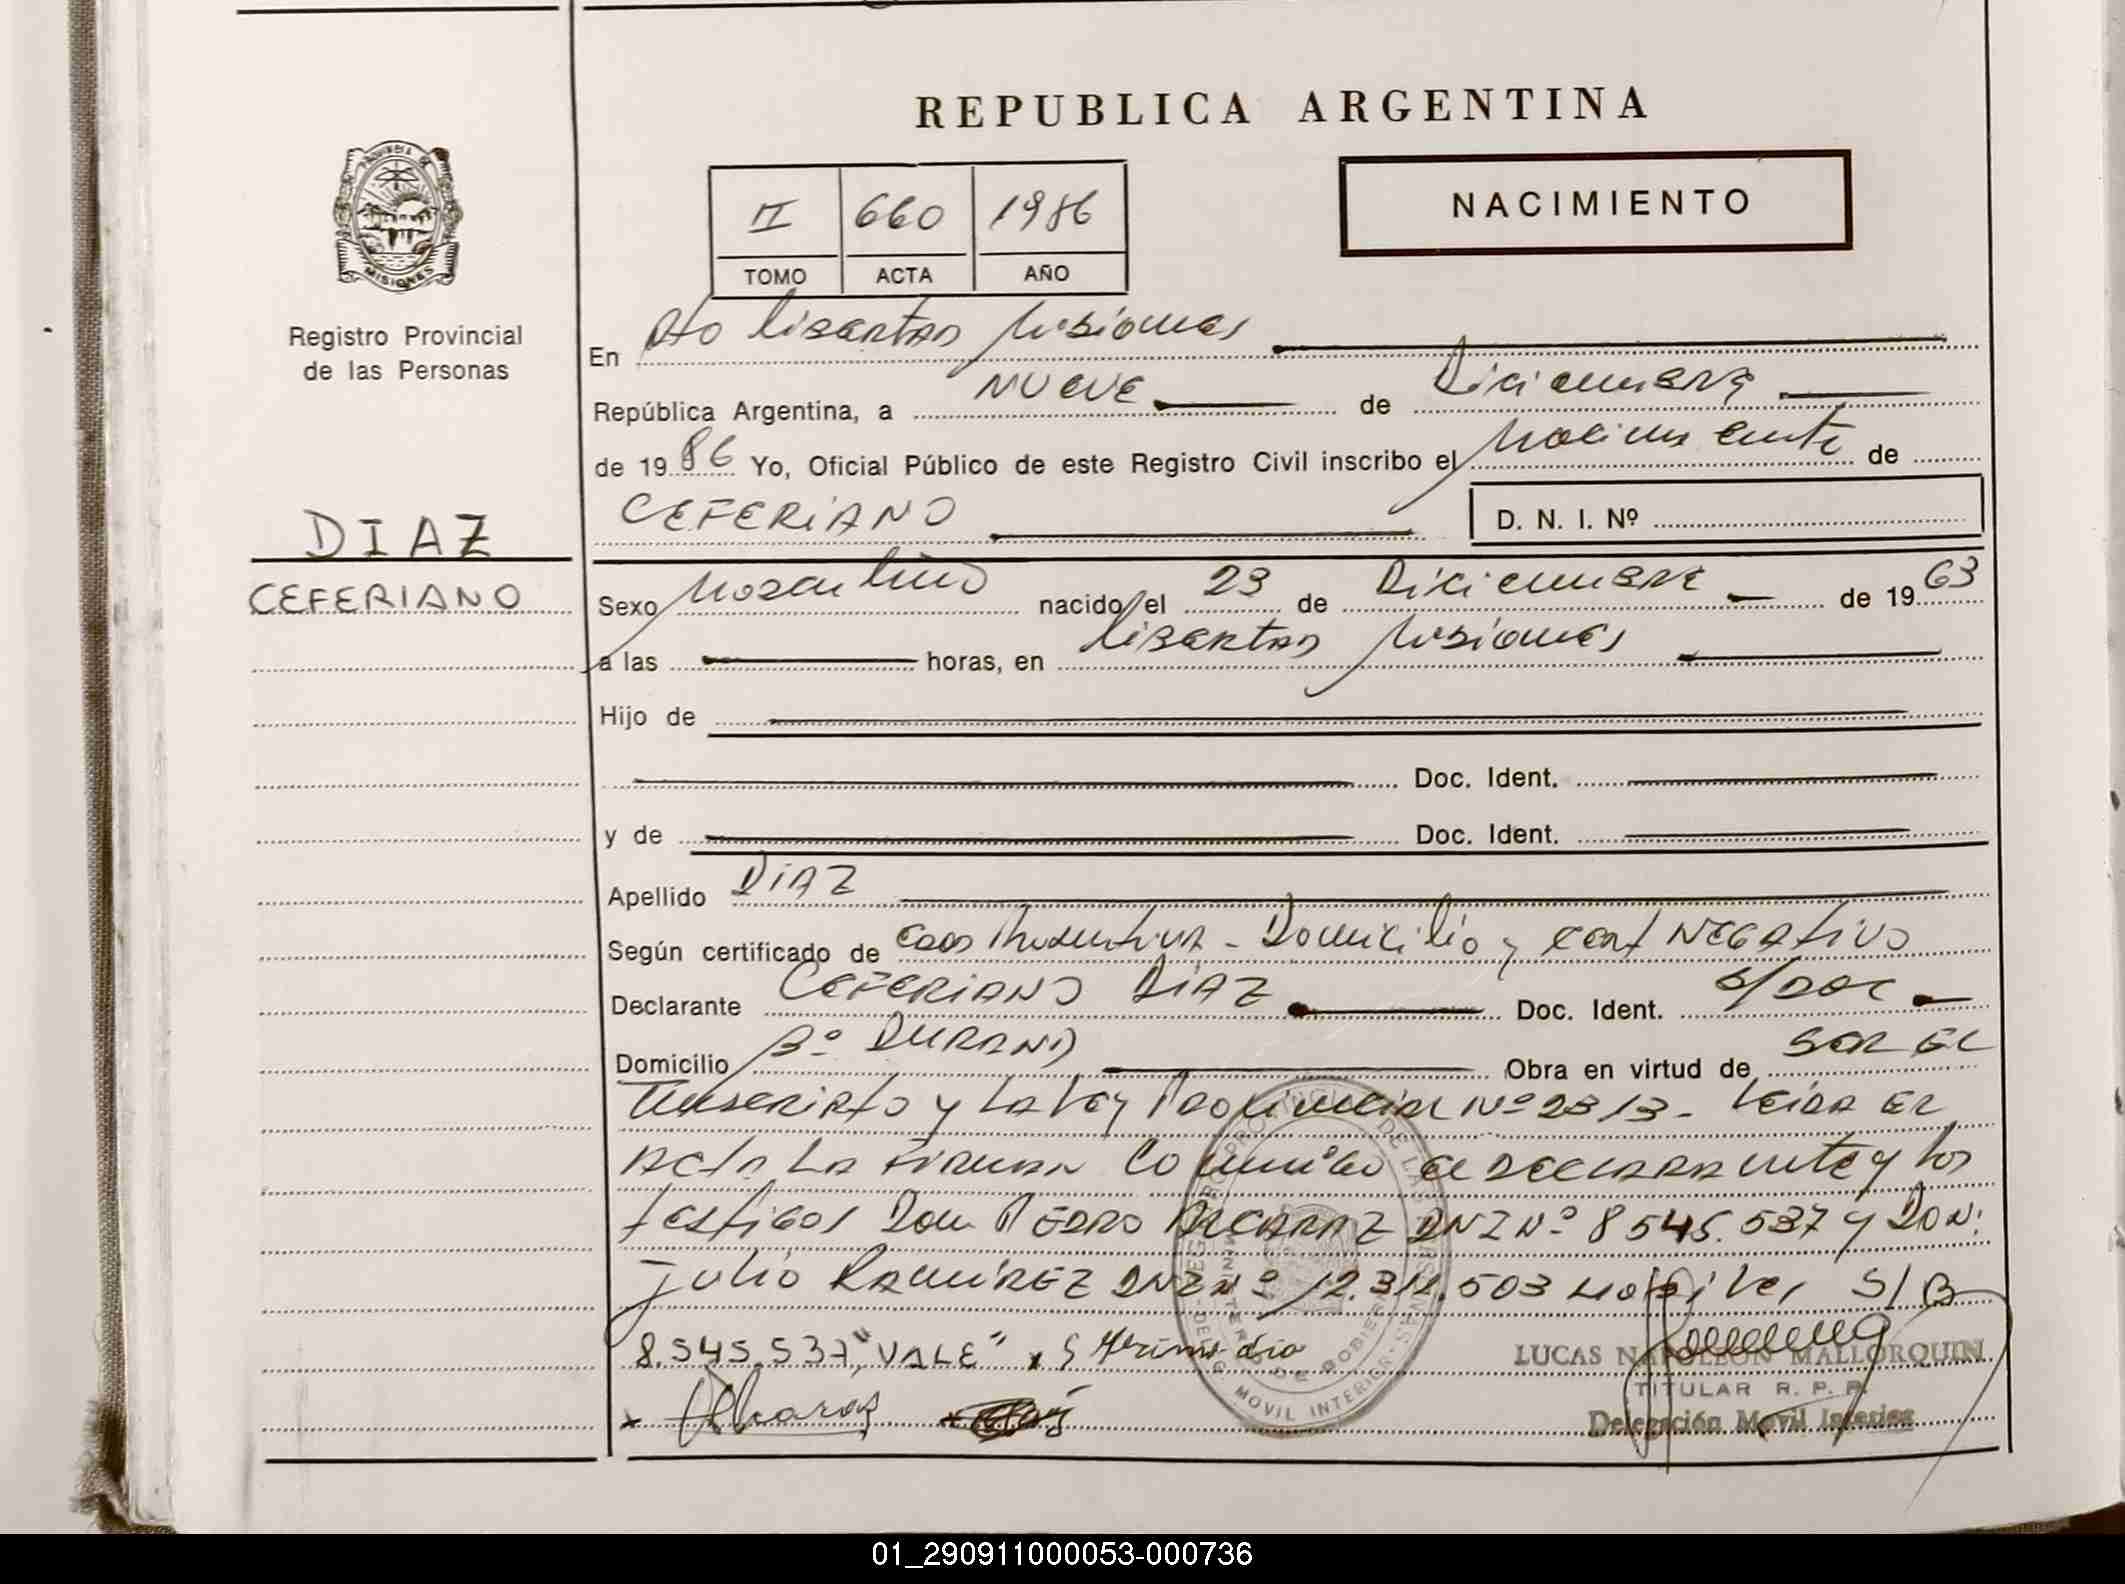 REPUBLICA ARGENTINA
PROVINCIA DE
MISIONES
Registro Provincial
de las Personas
II 660 1986
TOMO ACTA AÑO
NACIMIENTO
En Pto libertad Misiones
República Argentina, a NUEVE de Diciembre
de 1986 Yo, Oficial Público de este Registro Civil inscribo el Nacimiento de
CEFERIANO D. N. I. Nº
DIAZ
CEFERIANO
Sexo Masculino nacido el 23 de Diciembre de 1963
a las horas, en libertad Misiones
Hijo de
Doc. Ident.
y de Doc. Ident.
Apellido DIAZ
Según certificado de Domicilio y cert NEGATIVO
Declarante CEFERIANO DIAZ Doc. Ident. S/DOC
Domicilio Bº DURAND Obra en virtud de SER EL
Inscripto y La Ley Provincial Nº 2313 - Leida el
Acta La firman Conmigo el DECLARANTE y los
testigos Don PEDRO ALCARAZ DNI Nº 8545.537 y DON:
Julio RAMIREZ DNI Nº 12.311.503 S/B
8.545.537 "VALE"
LUCAS NAPOLEON MALLORQUIN
TITULAR R. P. P.
Delegación Movil Interior
x Alcaraz
01_290911000053-000736